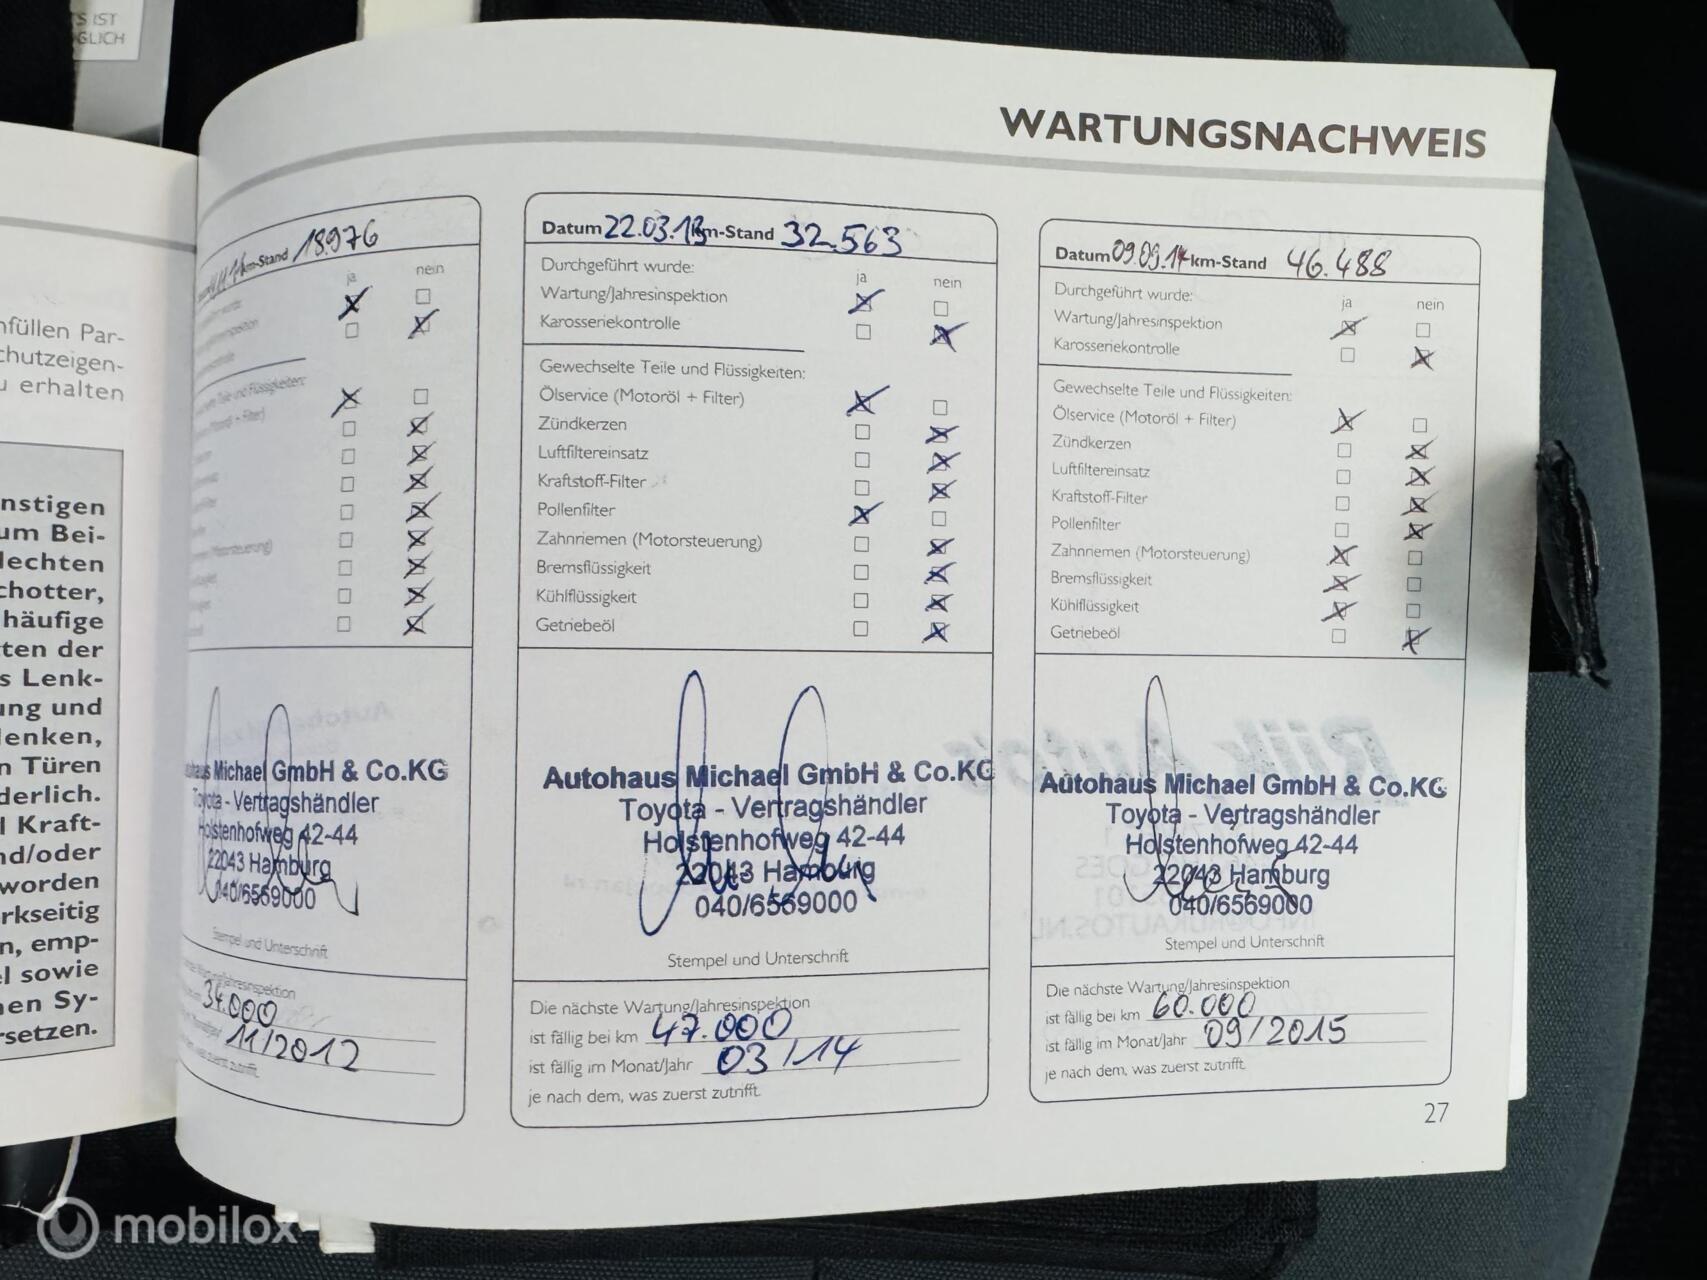 S IST
GLICH
nfüllen Par-
chutzeigen-
u erhalten
nstigen
um Bei-
lechten
chotter,
häufige
ten der
s Lenk-
ung und
lenken,
n Türen
derlich.
l Kraft-
nd/oder
worden
rkseitig
n, emp-
el sowie
nen Sy-
rsetzen.
WARTUNGSNACHWEIS
km-Stand 18.976
ja nein
Teile und Flüssigkeiten:
+ Filter)
(Motorsteuerung)
Autohaus Michael GmbH & Co.KG
Toyota - Vertragshändler
Holstenhofweg 42-44
22043 Hamburg
040/6569000
Stempel und Unterschrift
34.000
11/2012
zuerst zutrifft.
Datum 22.03.13 km-Stand 32.563
Durchgeführt wurde: ja nein
Wartung/Jahresinspektion
Karosseriekontrolle
Gewechselte Teile und Flüssigkeiten:
Ölservice (Motoröl + Filter)
Zündkerzen
Luftfiltereinsatz
Kraftstoff-Filter
Pollenfilter
Zahnriemen (Motorsteuerung)
Bremsflüssigkeit
Kühlflüssigkeit
Getriebeöl
Autohaus Michael GmbH & Co.KG
Toyota - Vertragshändler
Holstenhofweg 42-44
22043 Hamburg
040/6569000
Stempel und Unterschrift
Die nächste Wartung/Jahresinspektion
ist fällig bei km 47.000
ist fällig im Monat/Jahr 03/14
je nach dem, was zuerst zutrifft.
Datum 09.09.14 km-Stand 46.488
Durchgeführt wurde: ja nein
Wartung/Jahresinspektion
Karosseriekontrolle
Gewechselte Teile und Flüssigkeiten:
Ölservice (Motoröl + Filter)
Zündkerzen
Luftfiltereinsatz
Kraftstoff-Filter
Pollenfilter
Zahnriemen (Motorsteuerung)
Bremsflüssigkeit
Kühlflüssigkeit
Getriebeöl
Autohaus Michael GmbH & Co.KG
Toyota - Vertragshändler
Holstenhofweg 42-44
22043 Hamburg
040/6569000
Stempel und Unterschrift
Die nächste Wartung/Jahresinspektion
ist fällig bei km 60.000
ist fällig im Monat/Jahr 09/2015
je nach dem, was zuerst zutrifft.
27
mobilox